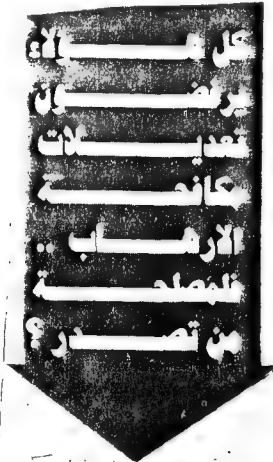 كل هؤلاء
يرفضون
تعديلات
مكافحة
الارهاب ..
فلمصلحة
من تصدر ؟